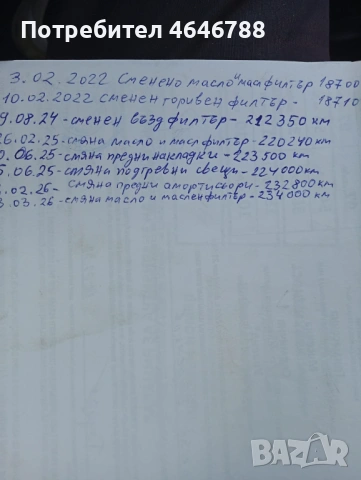 Потребител 4646788
3.02.2022 Сменено масло и масл филтър 18700
10.02.2022 сменен горивен филтър - 18710
9.08.24 - сменен възд филтър - 212350 км
26.02.25 - смяна масло и масл филтър - 220240 км
0.06.25 - смяна предни накладки - 223500 км
5.06.25 - смяна подгревни свещи - 224000 км
.02.26 - смяна предни амортисьори - 232800 км
3.03.26 - смяна масло и маслен филтър - 234000 км
BAZAR